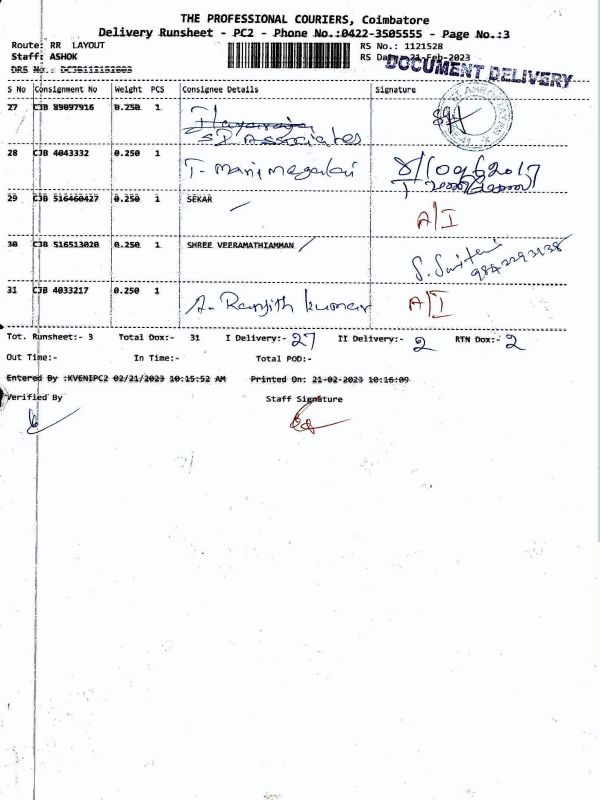 THE PROFESSIONAL COURIERS, Coimbatore
Delivery Runsheet - PC2 - Phone No.:0422-3505555 - Page No.:3
Route: RR LAYOUT RS No.: 1121528
Staff: ASHOK RS Date: 21-Feb-2023
DOCUMENT DELIVERY
DRS No.:
S No Consignment No Weight PCS Consignee Details Signature
27 CJB 89097916 0.250 1
SP Associates
28 CJB 4043332 0.250 1 T. Manimegalai
29 CJB 516460427 0.250 1 SEKAR A/I
30 CJB 516513020 0.250 1 SHREE VEERAMATHIAMMAN
31 CJB 4033217 0.250 1 A. Ranjith kumar A/I
Tot. Runsheet:- 3 Total Dox:- 31 I Delivery:- 27 II Delivery:- 2 RTN Dox:- 2
Out Time:- In Time:- Total POD:-
Entered By :KVENIPC2 02/21/2023 10:15:52 AM Printed On: 21-02-2023 10:16:09
Verified By Staff Signature